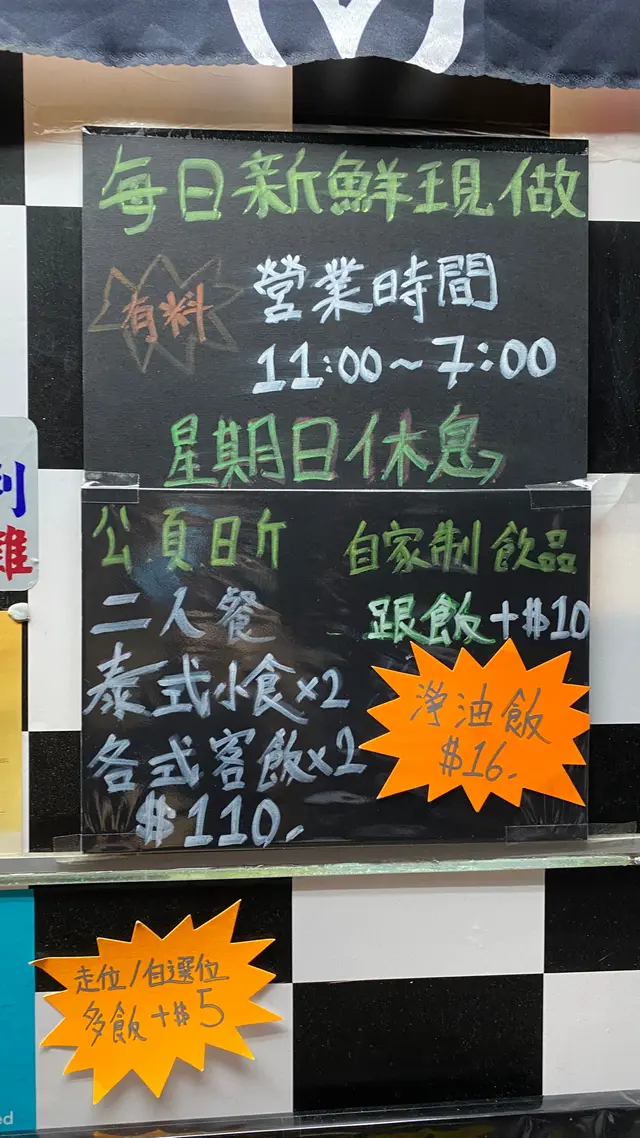 每日新鮮現做
有料
營業時間
11:00~7:00
星期日休息
自家制飲品
二人餐
跟飯+$10
泰式小食×2
各式客飯×2
$110.
淨油飯
$16.
走位/自選位
多飯+$5
ed